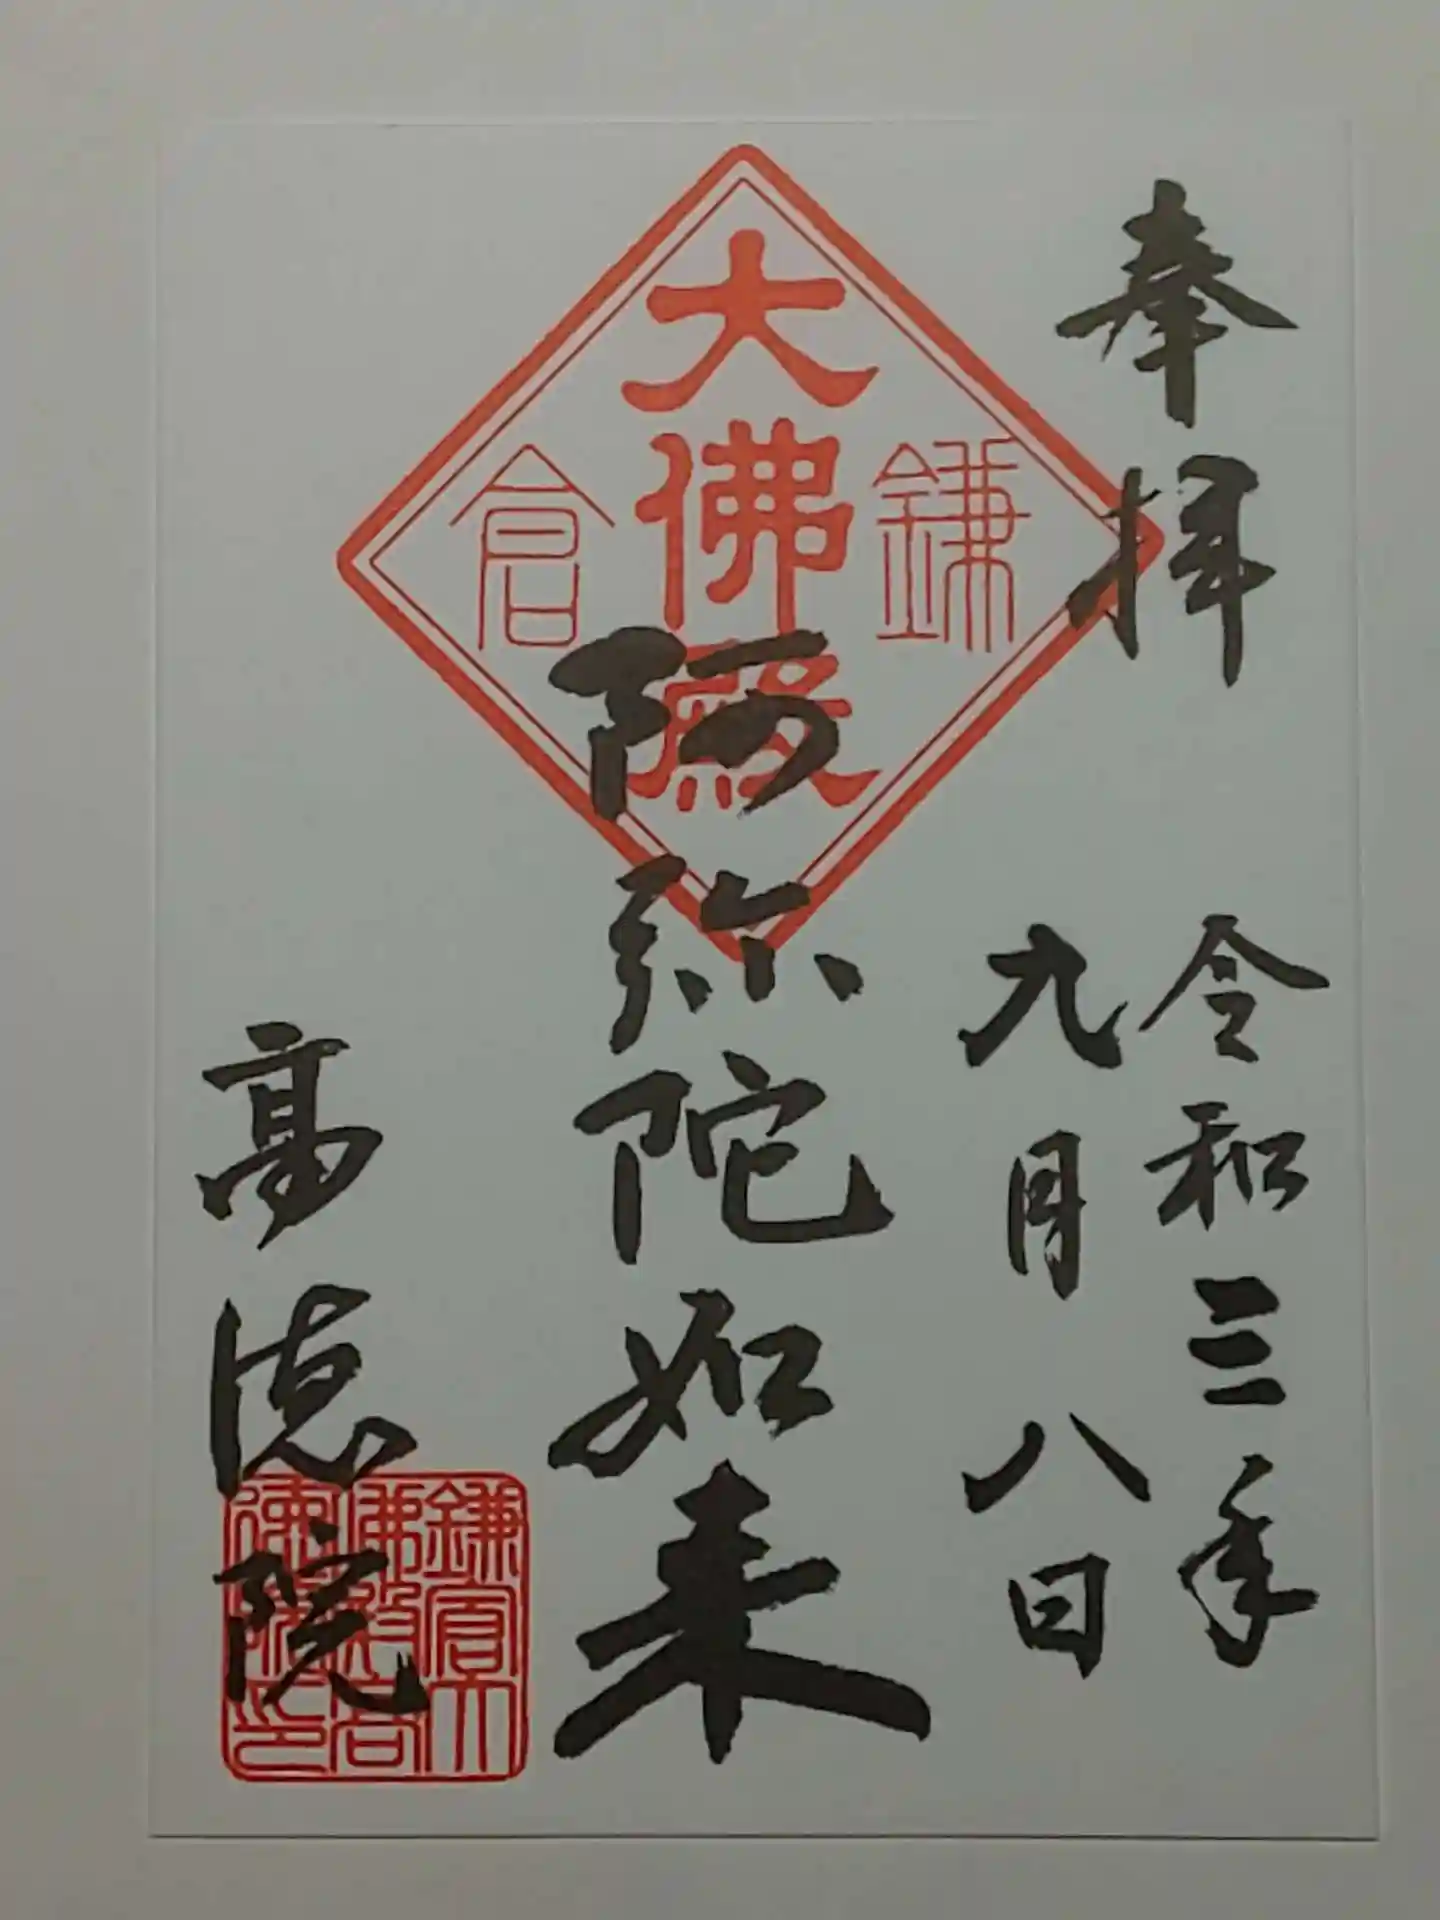 奉拝
令和三年
九月八日
鎌倉
大佛殿
阿弥陀如来
高徳院
鎌倉大
佛殿高
徳院印